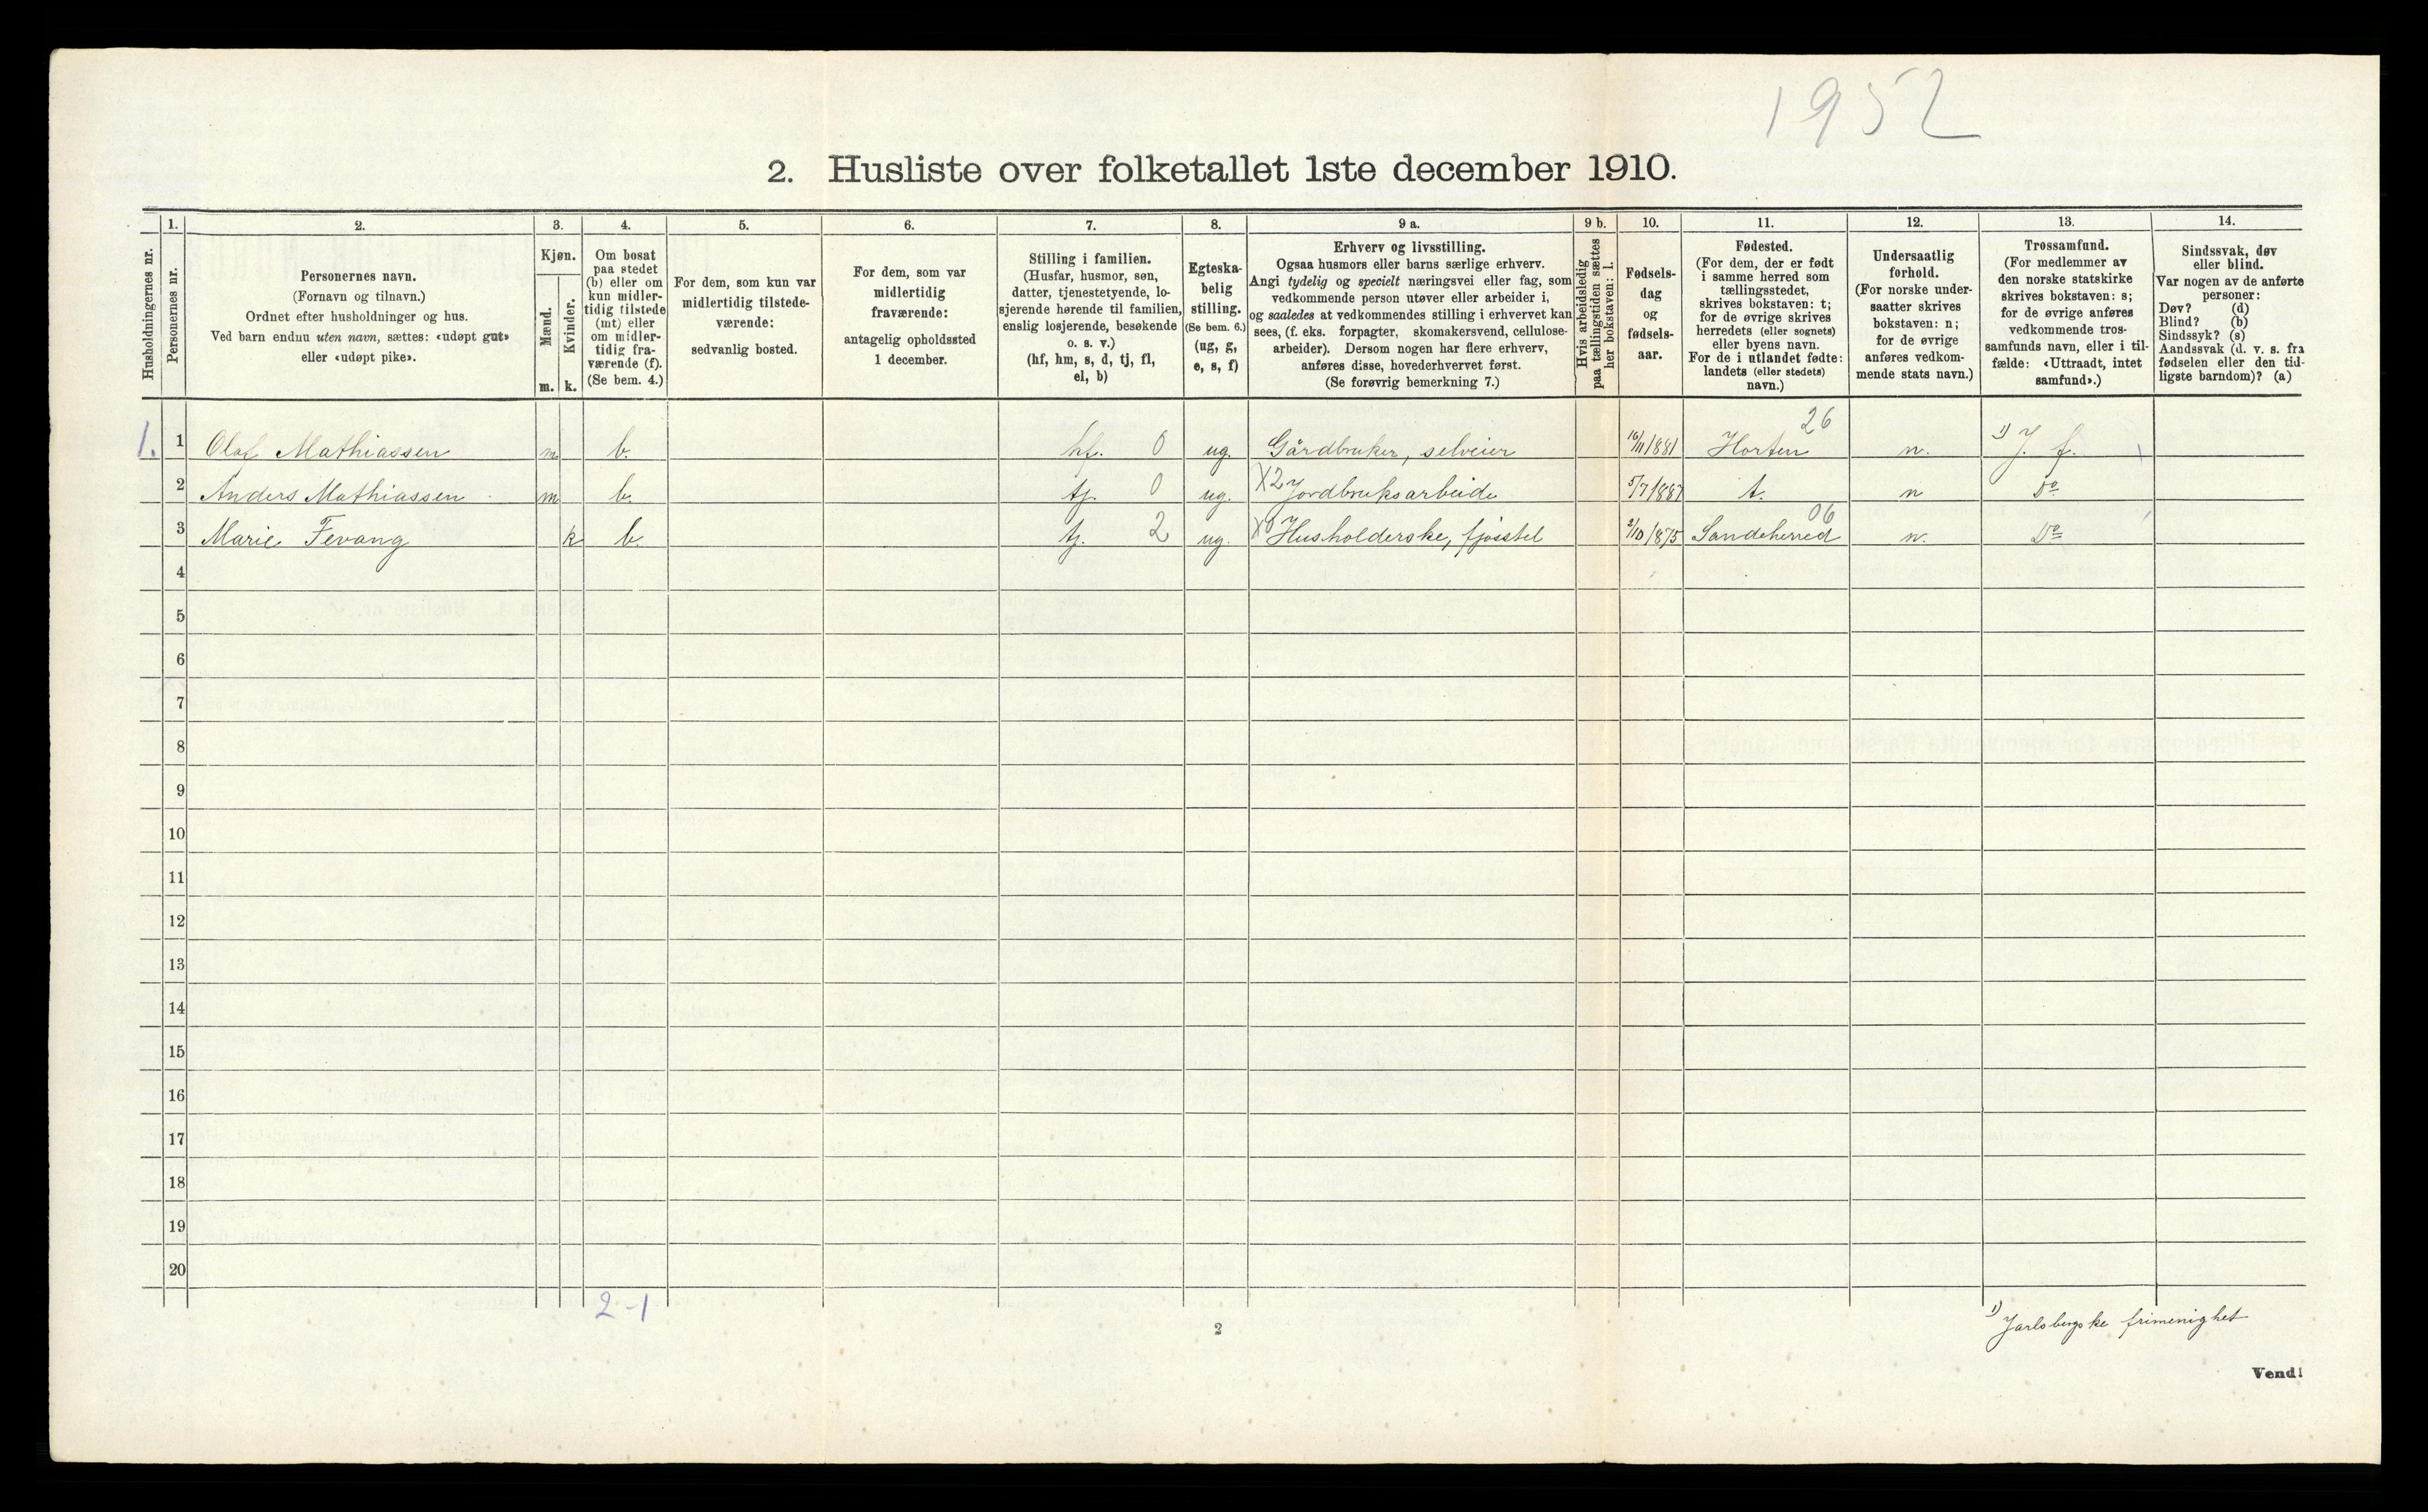 1952
2. Husliste over folketallet 1ste december 1910.
Husholdningernes nr.
1.
Personernes nr.
2.
Personernes navn.
(Fornavn og tilnavn.)
Ordnet efter husholdninger og hus.
Ved barn endnu uten navn, sættes: «udøpt gut»
eller «udøpt pike».
3.
Kjøn.
Mænd.
Kvinder.
m. k.
4.
Om bosat
paa stedet
(b) eller om
kun midler-
tidig tilstede
(mt) eller
om midler-
tidig fra-
værende (f).
(Se bem. 4.)
5.
For dem, som kun var
midlertidig tilstede-
værende:
sedvanlig bosted.
6.
For dem, som var
midlertidig
fraværende:
antagelig opholdssted
1 december.
7.
Stilling i familien.
(Husfar, husmor, søn,
datter, tjenestetyende, lo-
sjerende hørende til familien,
enslig losjerende, besøkende
o. s. v.)
(hf, hm, s, d, tj, fl,
el, b)
8.
Egteska-
belig
stilling.
(Se bem. 6.)
(ug, g,
e, s, f)
9 a.
Erhverv og livsstilling.
Ogsaa husmors eller barns særlige erhverv.
Angi tydelig og specielt næringsvei eller fag, som
vedkommende person utøver eller arbeider i,
og saaledes at vedkommendes stilling i erhvervet kan
sees, (f. eks. forpagter, skomakersvend, cellulose-
arbeider). Dersom nogen har flere erhverv,
anføres disse, hovederhvervet først.
(Se forøvrig bemerkning 7.)
9 b.
Hvis arbeidsledig
paa tællingstiden sættes
her bokstaven: l.
10.
Fødsels-
dag
og
fødsels-
aar.
11.
Fødested.
(For dem, der er født
i samme herred som
tællingsstedet,
skrives bokstaven: t;
for de øvrige skrives
herredets (eller sognets)
eller byens navn.
For de i utlandet fødte:
landets (eller stedets)
navn.)
12.
Undersaatlig
forhold.
(For norske under-
saatter skrives
bokstaven: n;
for de øvrige
anføres vedkom-
mende stats navn.)
13.
Trossamfund.
(For medlemmer av
den norske statskirke
skrives bokstaven: s;
for de øvrige anføres
vedkommende tros-
samfunds navn, eller i til-
fælde: «Uttraadt, intet
samfund».)
14.
Sindssvak, døv
eller blind.
Var nogen av de anførte
personer:
Døv? (d)
Blind? (b)
Sindssyk? (s)
Aandssvak (d. v. s. fra
fødselen eller den tid-
ligste barndom)? (a)
1. 1 Olaf Mathiassen m b. hf. 0 ug. Gårdbruker, selveier 16/11 1881 Horten 26 n. 1) J. f.
2 Anders Mathiassen m b. tj. 0 ug. X2 Jordbruksarbeide 5/7 1887 t. n do
3 Marie Fevang k b. tj. 2 ug. X0 Husholderske, fjøsstel 2/10 1875 Sandeherred 06 n. do
4
5
6
7
8
9
10
11
12
13
14
15
16
17
18
19
20
2-1
2
1) Jarlsbergske frimenighet
Vend!